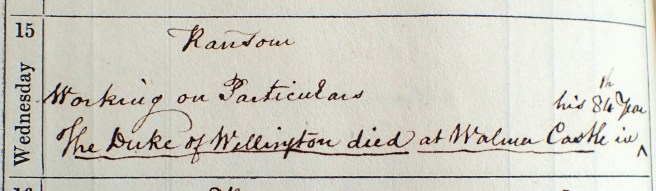 15
Wednesday
Ransom
Working on Particulars
his 84th Year
The Duke of Wellington died at Walmer Castle in ^